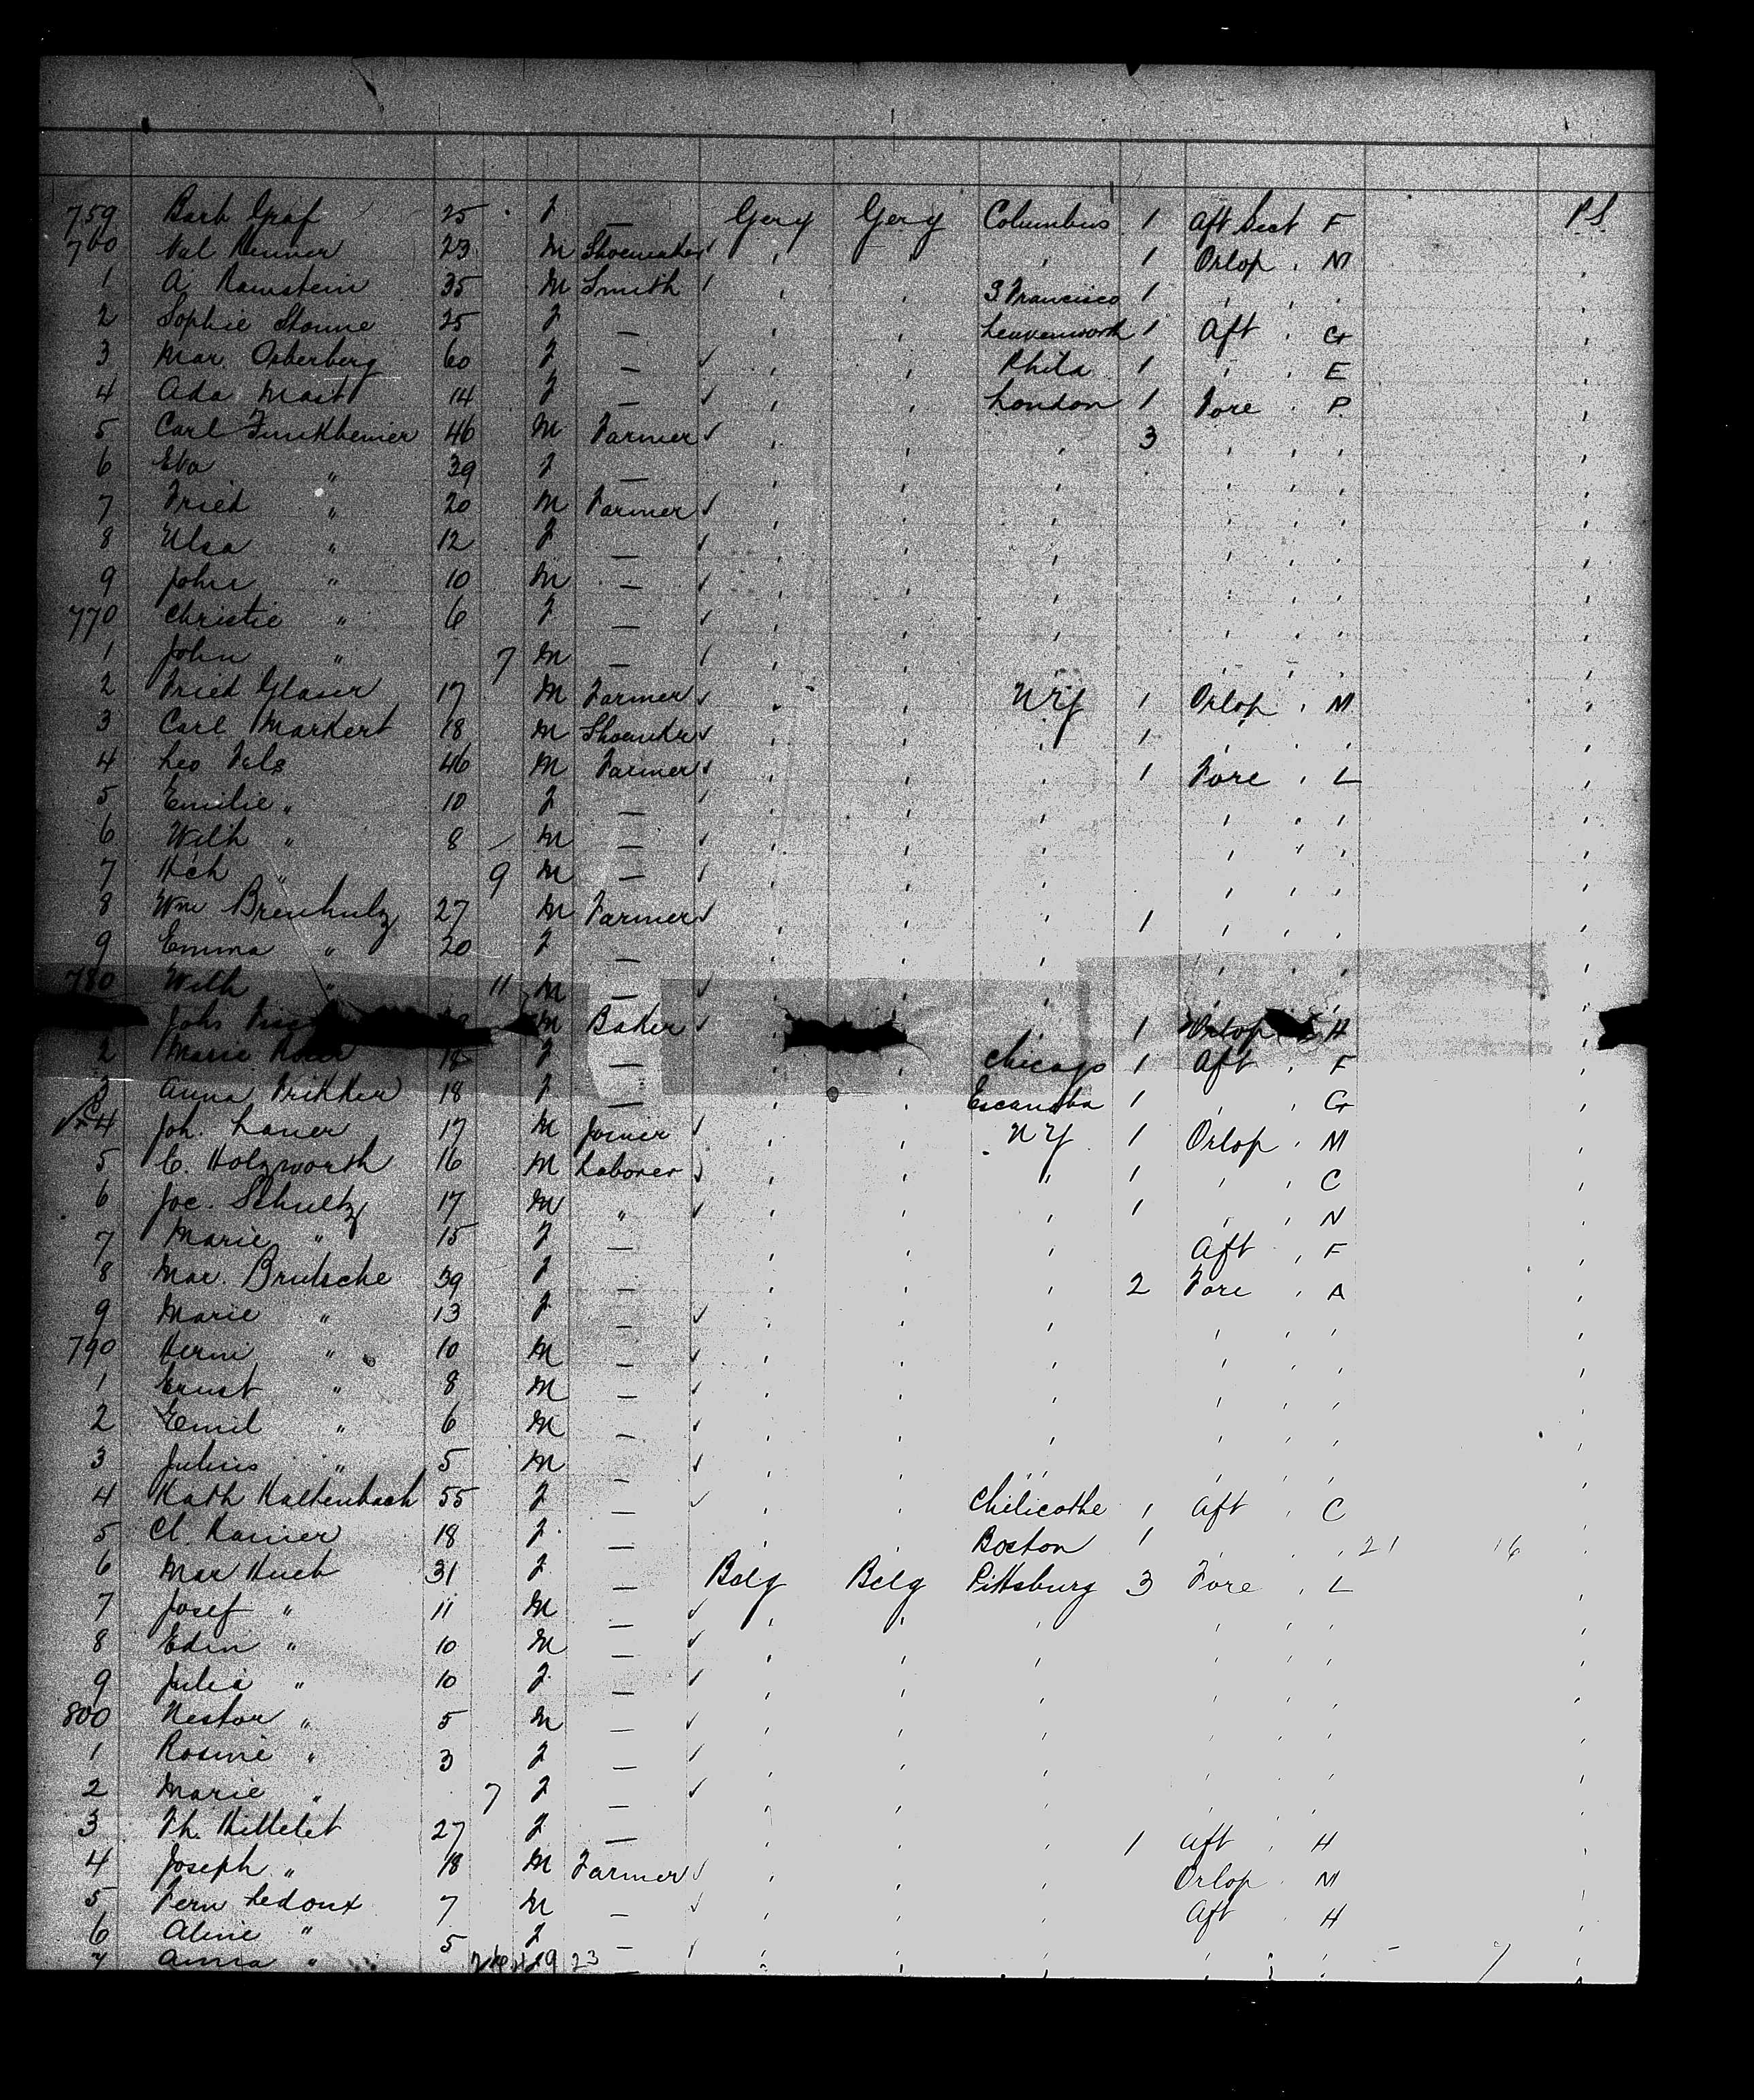 759 Barb Graf 25 F — Gery Gery Columbus 1 Aft Sect F P.S.
760 Val Renner 23 M Shoemaker ✓ " " " 1 Orlop " M "
1 A. Ramstein 35 M Smith " " S Francisco 1 " " " "
2 Sophie 25 F — " " Leavenworth 1 Aft " G "
3 Mar. Osberberg 60 F — ✓ " " Phila 1 " " E "
4 Ada Mast 14 F — ✓ " " London 1 Fore " P "
5 Carl Funkheiner 46 M Farmer ✓ " " " 3 " " " "
6 Eva " 39 F — " " " " " " "
7 Fried " 20 M Farmer ✓ " " " " " " "
8 Elsa " 12 F — " " " " " " "
9 John " 10 M — ✓ " " " " " " "
770 Christie " 6 F — ✓ " " " " " " "
1 John " 7 M — " " " " " " "
2 Fried Glaser 17 M Farmer ✓ " " N Y 1 Orlop " M "
3 Carl Markert 18 M Shoemkr ✓ " " " 1 " " " "
4 Leo Fels 46 M Farmer ✓ " " " 1 Fore " L "
5 Emilie " 10 F — " " " " " " "
6 Wilh " 8 M — ✓ " " " " " " "
7 Hch " 9 M — " " " " " " "
8 Wm Brenhulz 27 M Farmer ✓ " " " 1 " " " "
9 Emma " 20 F — " " " " " " "
780 Wilh " 11 M — ✓ " " " " " " "
Joh M Baker ✓ " 1 Orlop H "
2 Marie F — " " Chicago 1 Aft " F "
3 Anna Frikker 18 F — " " Escanaba 1 " " G "
4 Joh. Lauer 17 M Joiner ✓ " " N Y 1 Orlop " M "
5 C. Holzworth 16 M Laborer " " " 1 " C "
6 Joe. Schultz 17 M " ✓ " " " 1 " N "
7 Marie " 15 F — " " " Aft " F "
8 Mar. Brutsche 39 F — " " " 2 Fore " A "
9 Marie " 13 F — ✓ " " " " " " "
790 Herm " 10 M — ✓ " " " " " " "
1 Ernst " 8 M — ✓ " " " " " " "
2 Emil " 6 M — ✓ " " " " " " "
3 Julius " 5 M — ✓ " " " " " " "
4 Kath Kaltenbach 55 F — ✓ " " Chilicothe 1 Aft " C "
5 Cl. Kanier 18 F — " " Boston 1 " " " 21 16 "
6 Mar Hueb 31 F — Belg Belg Pittsburg 3 Fore " L "
7 Josef " 11 M — ✓ " " " " " " "
8 Edm " 10 M — ✓ " " " " " " "
9 Julia " 10 F — ✓ " " " " " " "
800 Nestor " 5 M — ✓ " " " " " " "
1 Rosine " 3 F — ✓ " " " " " " "
2 Marie " 7 F — ✓ " " " " " " "
3 Th. Hittelet 27 F — " " " 1 Aft " H "
4 Joseph " 18 M Farmer ✓ " " " Orlop " M "
5 Fern Ledoux 7 M — ✓ " " " Aft " H "
6 Aline " 5 F — " " " " " " "
7 Anna " 23 — " " " " " " 7 "